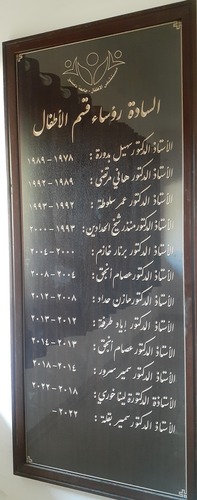 السادة رؤساء قسم الأطفال
الأستاذ الدكتور سهيل بدورة : ١٩٧٨ - ١٩٨٩
الأستاذ الدكتور هاني مرتضى : ١٩٨٩ - ١٩٩٢
الأستاذ الدكتور عمر سلوطة : ١٩٩٢ - ١٩٩٣
الأستاذ الدكتور منذر شيخ الحدادين : ١٩٩٣ - ٢٠٠٠
الأستاذ الدكتور برنار خازم : ٢٠٠٠ - ٢٠٠٤
الأستاذ الدكتور عصام أنجق : ٢٠٠٤ - ٢٠٠٨
الأستاذ الدكتور مازن حداد : ٢٠٠٨ - ٢٠١٢
الأستاذ الدكتور إياد طرفة : ٢٠١٢ - ٢٠١٣
الأستاذ الدكتور عصام أنجق : ٢٠١٣ - ٢٠١٤
الأستاذ الدكتور سمير سرور : ٢٠١٤ - ٢٠١٨
الأستاذة الدكتورة لينا خوري : ٢٠١٨ - ٢٠٢٢
الأستاذ الدكتور سمير بقلة : ٢٠٢٢ -